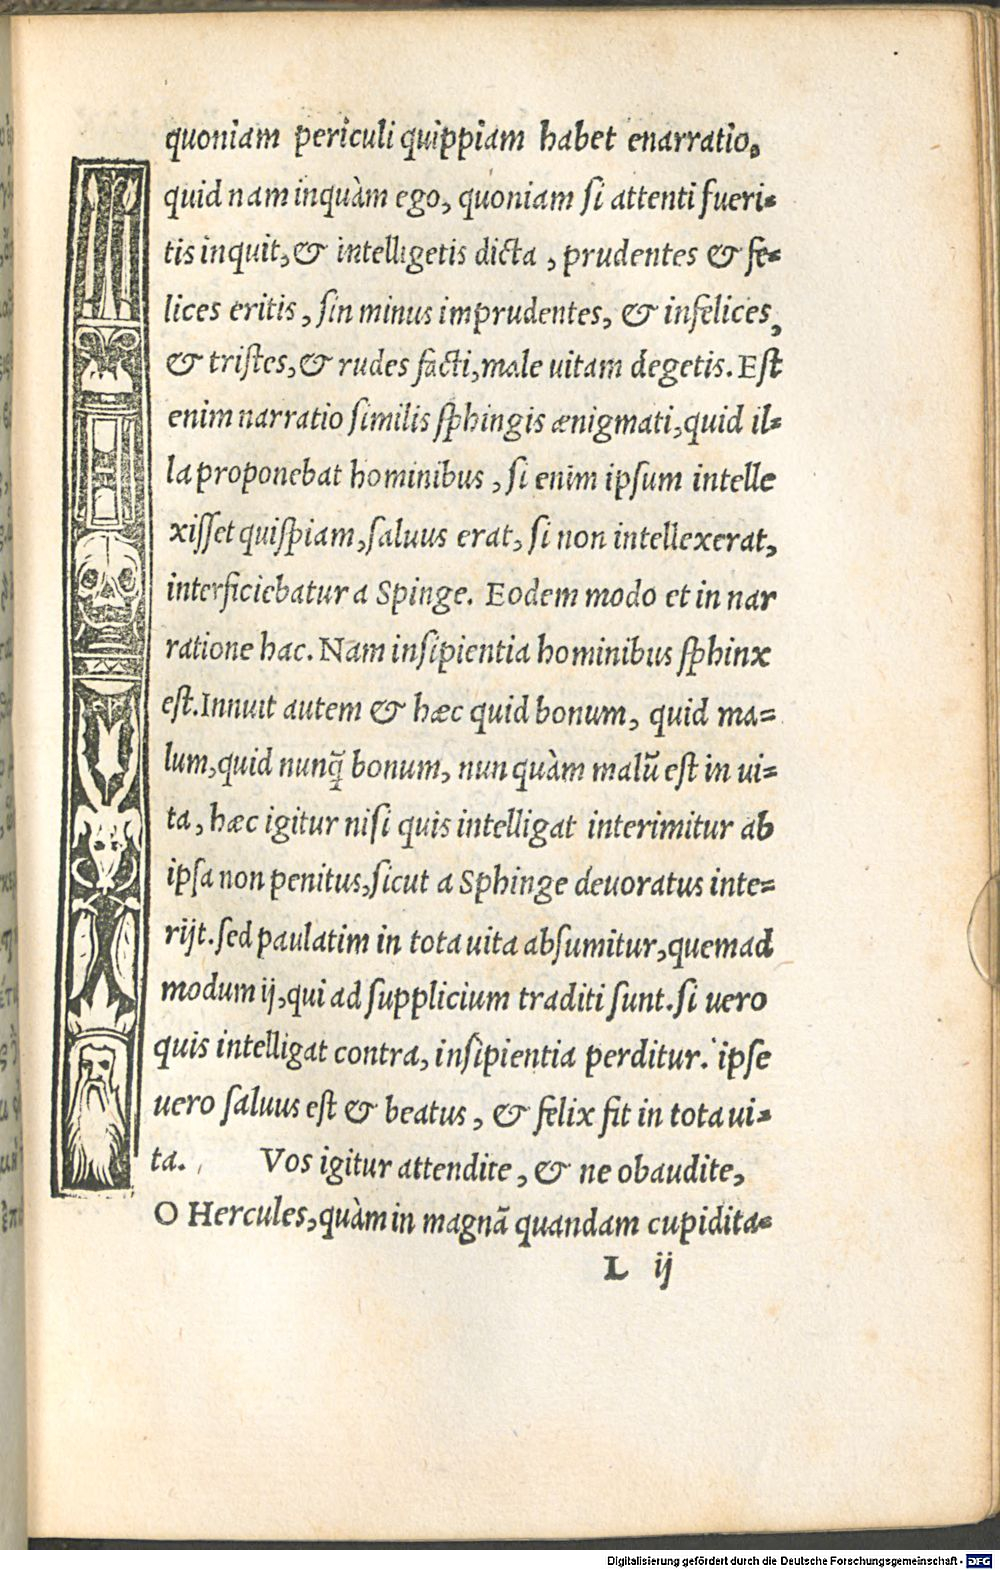 quoniam periculi quippiam habet enarratio,
quid nam inquàm ego, quoniam si attenti fueri=
tis inquit, & intelligetis dicta, prudentes & fe=
lices eritis, sin minus imprudentes, & infelices,
& tristes, & rudes facti, male uitam degetis. Est
enim narratio similis sphingis ænigmati, quid il=
la proponebat hominibus, si enim ipsum intelle
xisset quispiam, saluus erat, si non intellexerat,
interficiebatur a Spinge. Eodem modo et in nar
ratione hac. Nam insipientia hominibus sphinx
est. Innuit autem & hæc quid bonum, quid ma=
lum, quid nunq̃ bonum, nunquàm malũ est in ui=
ta, hæc igitur nisi quis intelligat interimitur ab
ipsa non penitus, sicut a Sphinge deuoratus inte=
rijt. sed paulatim in tota uita absumitur, quemad
modum ij, qui ad supplicium traditi sunt. si uero
quis intelligat contra, insipientia perditur. ipse
uero saluus est & beatus, & felix fit in tota ui=
ta. Vos igitur attendite, & ne obaudite,
O Hercules, quàm in magnã quandam cupidita=
L ij
Digitalisierung gefördert durch die Deutsche Forschungsgemeinschaft - DFG